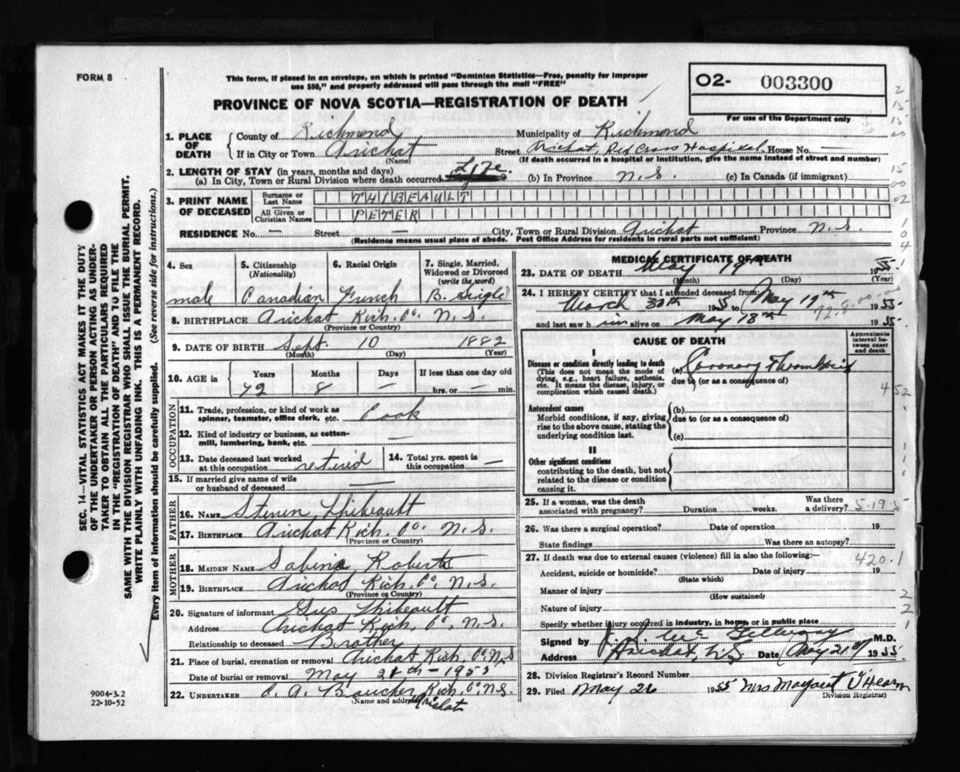 FORM 8
This form, if placed in an envelope, on which is printed "Dominion Statistics—Free, penalty for improper
use $50," and properly addressed will pass through the mail "FREE"
02- 003300
For use of the Department only
PROVINCE OF NOVA SCOTIA—REGISTRATION OF DEATH
1. PLACE OF DEATH County of Richmond Municipality of Richmond
If in City or Town Arichat (Name) Street Arichat, Red Cross Hospital House No. —
(If death occurred in a hospital or institution, give the name instead of street and number)
2. LENGTH OF STAY (in years, months and days)
(a) In City, Town or Rural Division where death occurred Life. (b) In Province N.S. (c) In Canada (if immigrant)
3. PRINT NAME OF DECEASED Surname or Last Name THIBEAULT
All Given or Christian Names PETER
RESIDENCE No. — Street — City, Town or Rural Division Arichat Province N.S.
(Residence means usual place of abode. Post Office Address for residents in rural parts not sufficient)
4. Sex male
5. Citizenship (Nationality) Canadian
6. Racial Origin French
7. Single, Married, Widowed or Divorced (write the word) B. Single
8. BIRTHPLACE Arichat Rich. Co. N.S.
(Province or Country)
9. DATE OF BIRTH Sept. 10 1882
(Month) (Day) (Year)
10. AGE in Years 72 Months 8 Days — If less than one day old hrs. or — min.
OCCUPATION
11. Trade, profession, or kind of work as spinner, teamster, office clerk, etc. Cook
12. Kind of industry or business, as cotton-mill, lumbering, bank, etc. —
13. Date deceased last worked at this occupation retired
14. Total yrs. spent in this occupation —
15. If married give name of wife or husband of deceased
FATHER
16. NAME Thibeault
17. BIRTHPLACE Arichat Rich. Co. N.S.
(Province or Country)
MOTHER
18. MAIDEN NAME Sabina Roberts
19. BIRTHPLACE Arichat Rich. Co. N.S.
(Province or Country)
20. Signature of informant Gus Thibeault
Address Arichat Rich. Co. N.S.
Relationship to deceased Brother
21. Place of burial, cremation or removal Arichat Rich. Co. N.S.
Date of burial or removal May 21th - 1955
22. UNDERTAKER A. Boucher Rich. Co. N.S.
(Name and address) Arichat
MEDICAL CERTIFICATE OF DEATH
23. DATE OF DEATH May 19th 1955
(Month) (Day) (Year)
24. I HEREBY CERTIFY that I attended deceased from
March 30th 1955 to May 19th 1955
and last saw him alive on May 18th 1955
CAUSE OF DEATH
Approximate interval between onset and death
I
Disease or condition directly leading to death
(This does not mean the mode of dying, e.g., heart failure, asthenia, etc. It means the disease, injury, or complication which caused death.)
(a) Coronary Thrombosis
due to (or as a consequence of)
Antecedent causes
Morbid conditions, if any, giving rise to the above cause, stating the underlying condition last.
(b)
due to (or as a consequence of)
(c)
II
Other significant conditions
contributing to the death, but not related to the disease or condition causing it.
452
25. If a woman, was the death associated with pregnancy? Duration weeks. Was there a delivery?
5-19-5
26. Was there a surgical operation? Date of operation 19
State findings Was there an autopsy?
27. If death was due to external causes (violence) fill in also the following:—
420.1
Accident, suicide or homicide? (State which) Date of injury 19
Manner of injury (How sustained)
Nature of injury
Specify whether injury occurred in industry, in home or in public place
Signed by M.D.
Address Arichat, N.S. Date May 21st 1955
28. Division Registrar's Record Number
29. Filed May 26 1955 Mrs Margaret O'Hearn
Division Registrar)
SEC. 14—VITAL STATISTICS ACT MAKES IT THE DUTY
OF THE UNDERTAKER OR PERSON ACTING AS UNDER-
TAKER TO OBTAIN ALL THE PARTICULARS REQUIRED
IN THE "REGISTRATION OF DEATH" AND TO FILE THE
SAME WITH THE DIVISION REGISTRAR WHO SHALL ISSUE THE BURIAL PERMIT.
WRITE PLAINLY WITH UNFADING INK. THIS IS A PERMANENT RECORD.
Every item of information should be carefully supplied. (See reverse side for instructions.)
9004-3.2
22-10-52